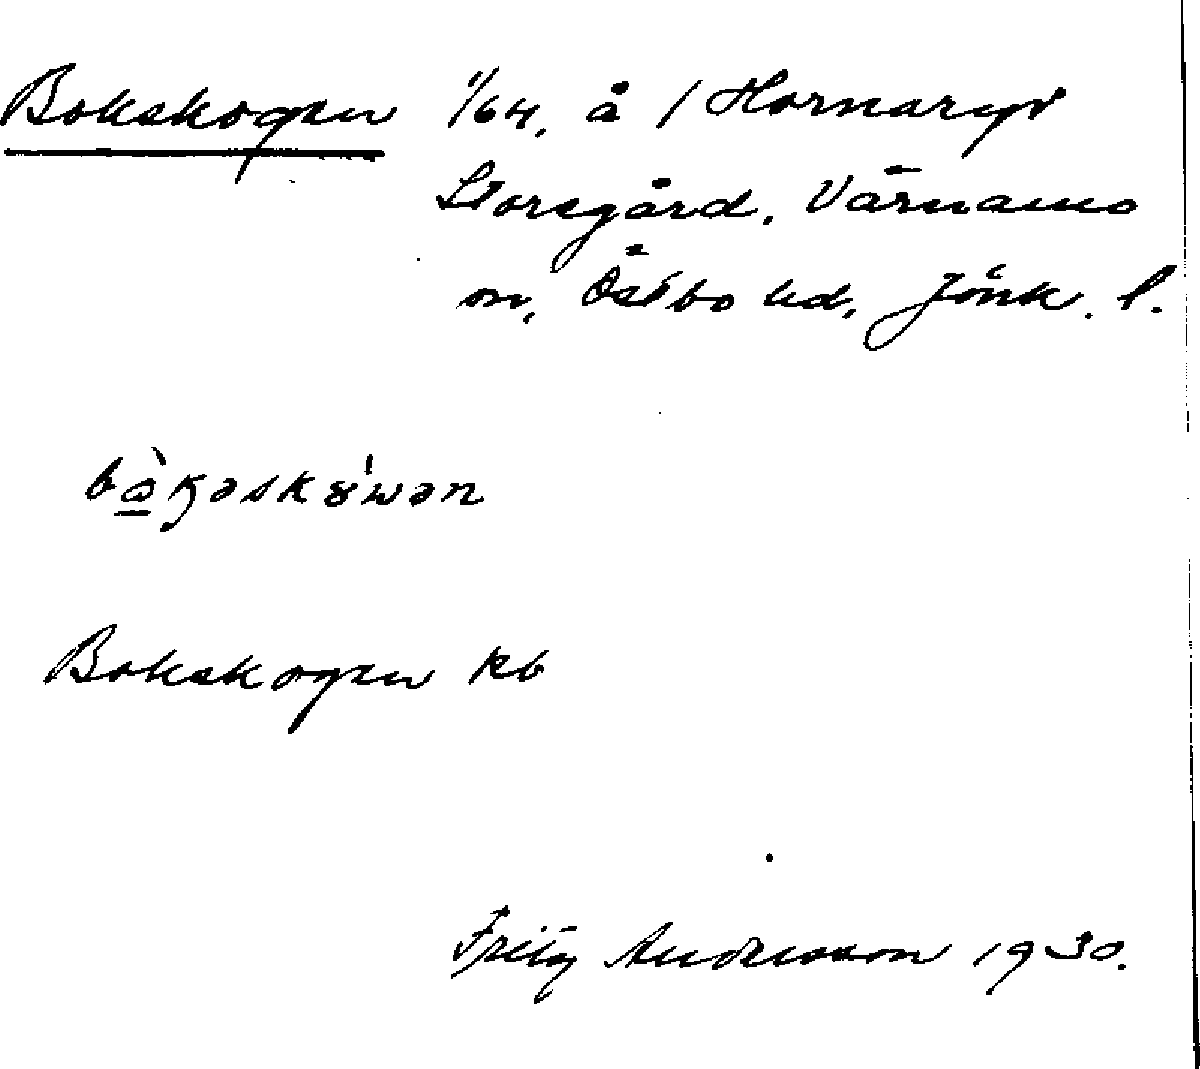 Bokskogen 1/64, å / Hornaryd
Storegård, Värnamo
sn, Östbo hd, Jönk. l.
bò̲kəskɤ'wən
Bokskogen kb
Fritz Andersson 1930.